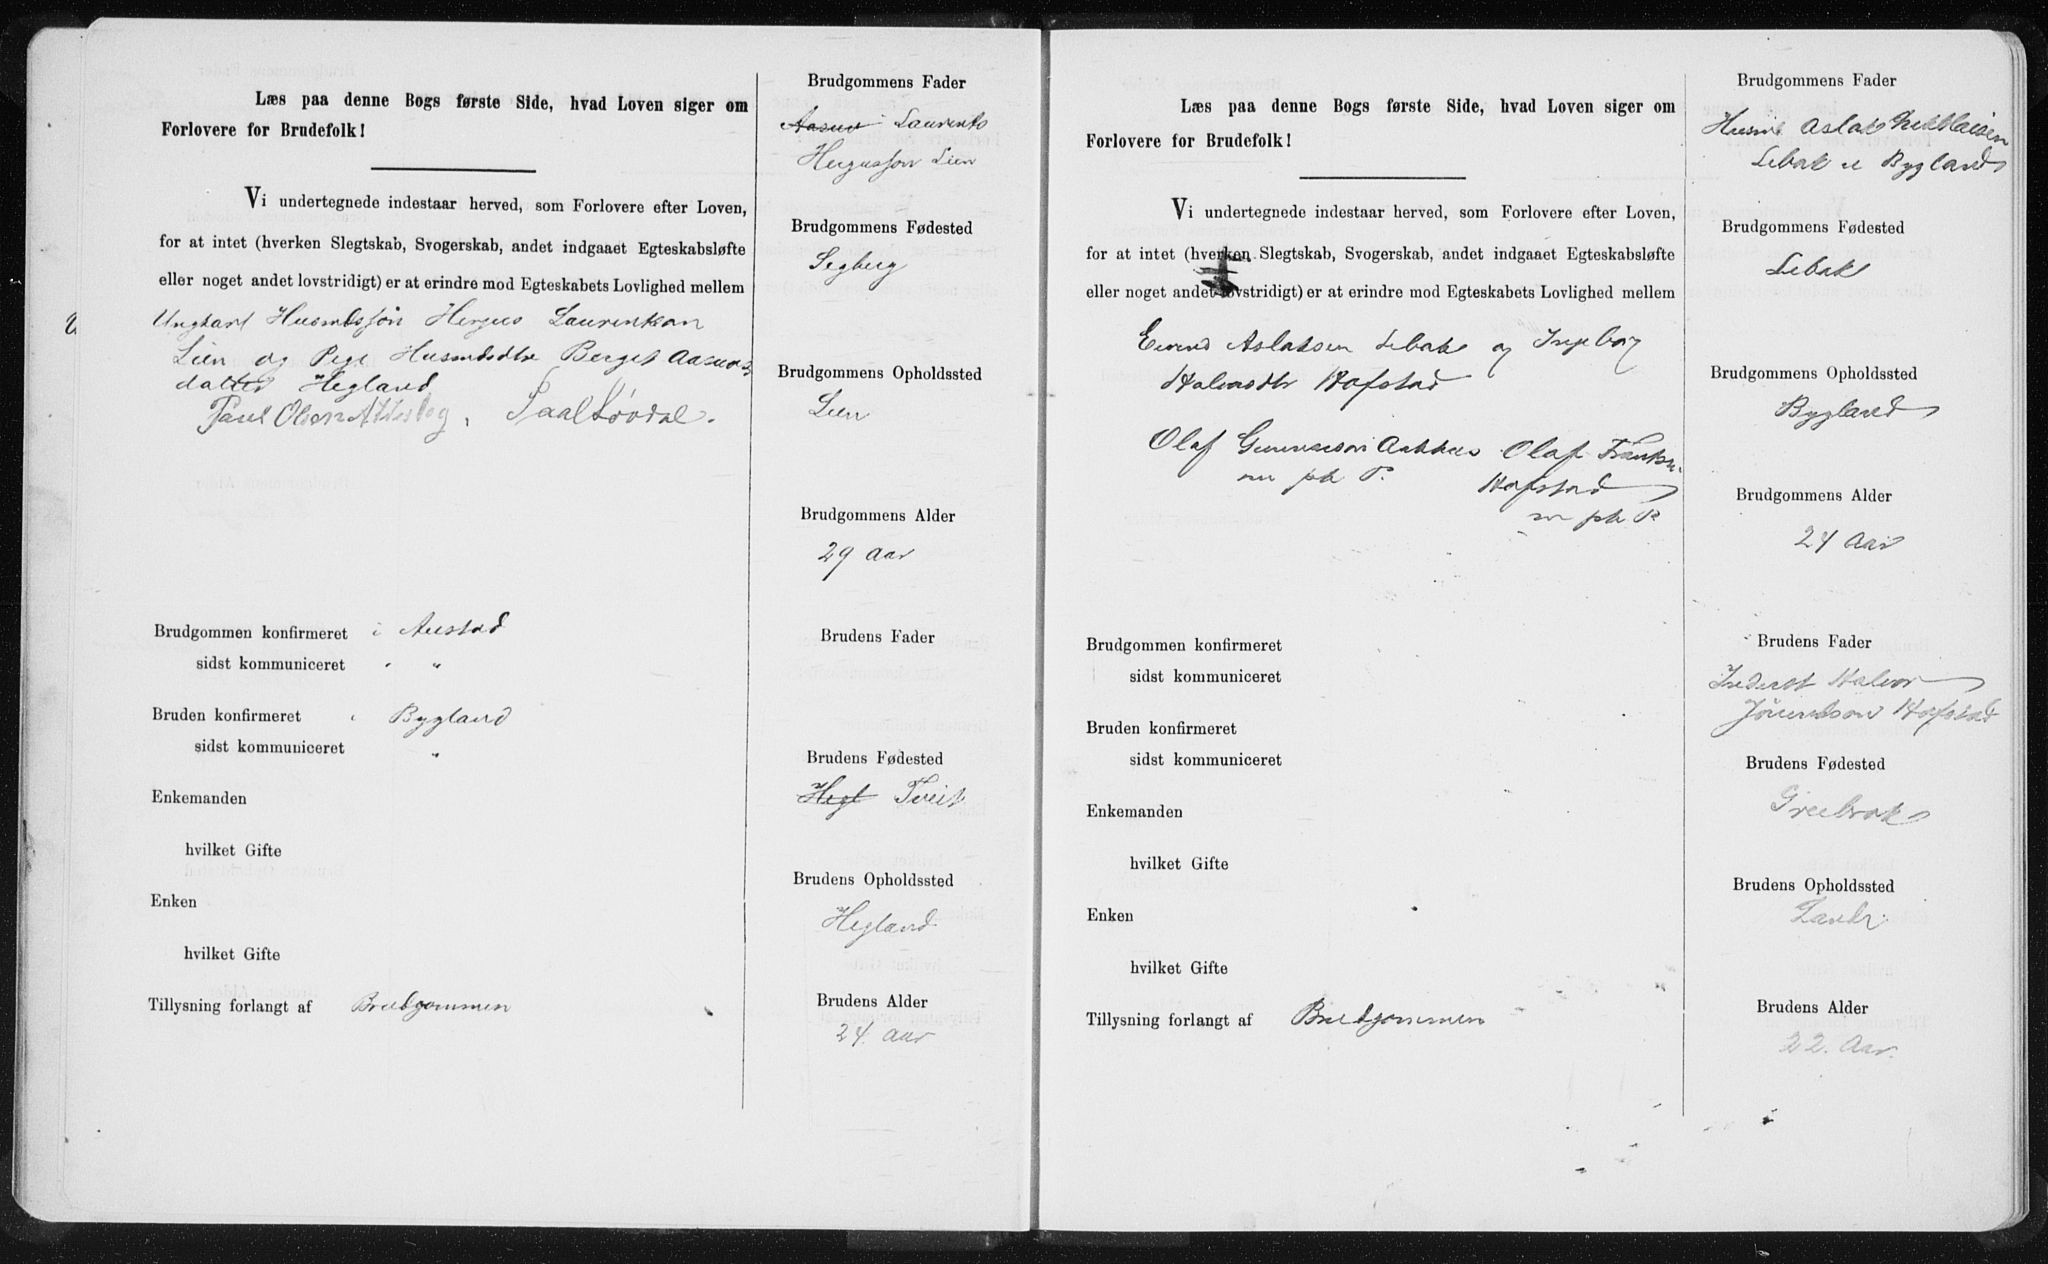 Læs paa denne Bogs første Side, hvad Loven siger om
Forlovere for Brudefolk!
Vi undertegnede indestaar herved, som Forlovere efter Loven,
for at intet (hverken Slegtskab, Svogerskab, andet indgaaet Egteskabsløfte
eller noget andet lovstridigt) er at erindre mod Egteskabets Lovlighed mellem
Ungkarl Husmdssøn Hergus Laurentsøn
Lien og Pige Husmdsdtr Berget Aasuvs
datter Hegland
Paul Olsen
Brudgommen konfirmeret i Austad
sidst kommuniceret " "
Bruden konfirmeret i Bygland
sidst kommuniceret "
Enkemanden
hvilket Gifte
Enken
hvilket Gifte
Tillysning forlangt af Brudgommen
Brudgommens Fader
Aasuv Laurents
Hergusson Lien
Brudgommens Fødested
Segberg
Brudgommens Opholdssted
Lien
Brudgommens Alder
29 Aar
Brudens Fader
Brudens Fødested
Hegl Tveit
Brudens Opholdssted
Hegland
Brudens Alder
24 Aar
Læs paa denne Bogs første Side, hvad Loven siger om
Forlovere for Brudefolk!
Vi undertegnede indestaar herved, som Forlovere efter Loven,
for at intet (hverken Slegtskab, Svogerskab, andet indgaaet Egteskabsløfte
eller noget andet lovstridigt) er at erindre mod Egteskabets Lovlighed mellem
Eivind Aslaksen Libak og Ingeborg
Halvorsdtr Hofstad
Olaf Gunnarson Olaf
m p. P. Hofstad
m p. P.
Brudgommen konfirmeret
sidst kommuniceret
Bruden konfirmeret
sidst kommuniceret
Enkemanden
hvilket Gifte
Enken
hvilket Gifte
Tillysning forlangt af Brudgommen
Brudgommens Fader
Husmd Aslak Nikolaisen
Libak i Bygland
Brudgommens Fødested
Libak
Brudgommens Opholdssted
Bygland
Brudgommens Alder
24 Aar
Brudens Fader
Inderst Halvor
Jørundson Hofstad
Brudens Fødested
Brudens Opholdssted
Brudens Alder
22. Aar.